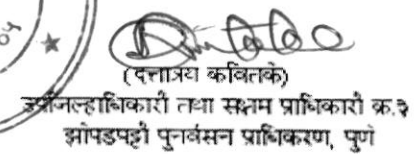 ०५
(दत्तात्रय कवितके)
उपजिल्हाधिकारी तथा सक्षम प्राधिकारी क्र.३
झोपडपट्टी पुनर्वसन प्राधिकरण, पुणे